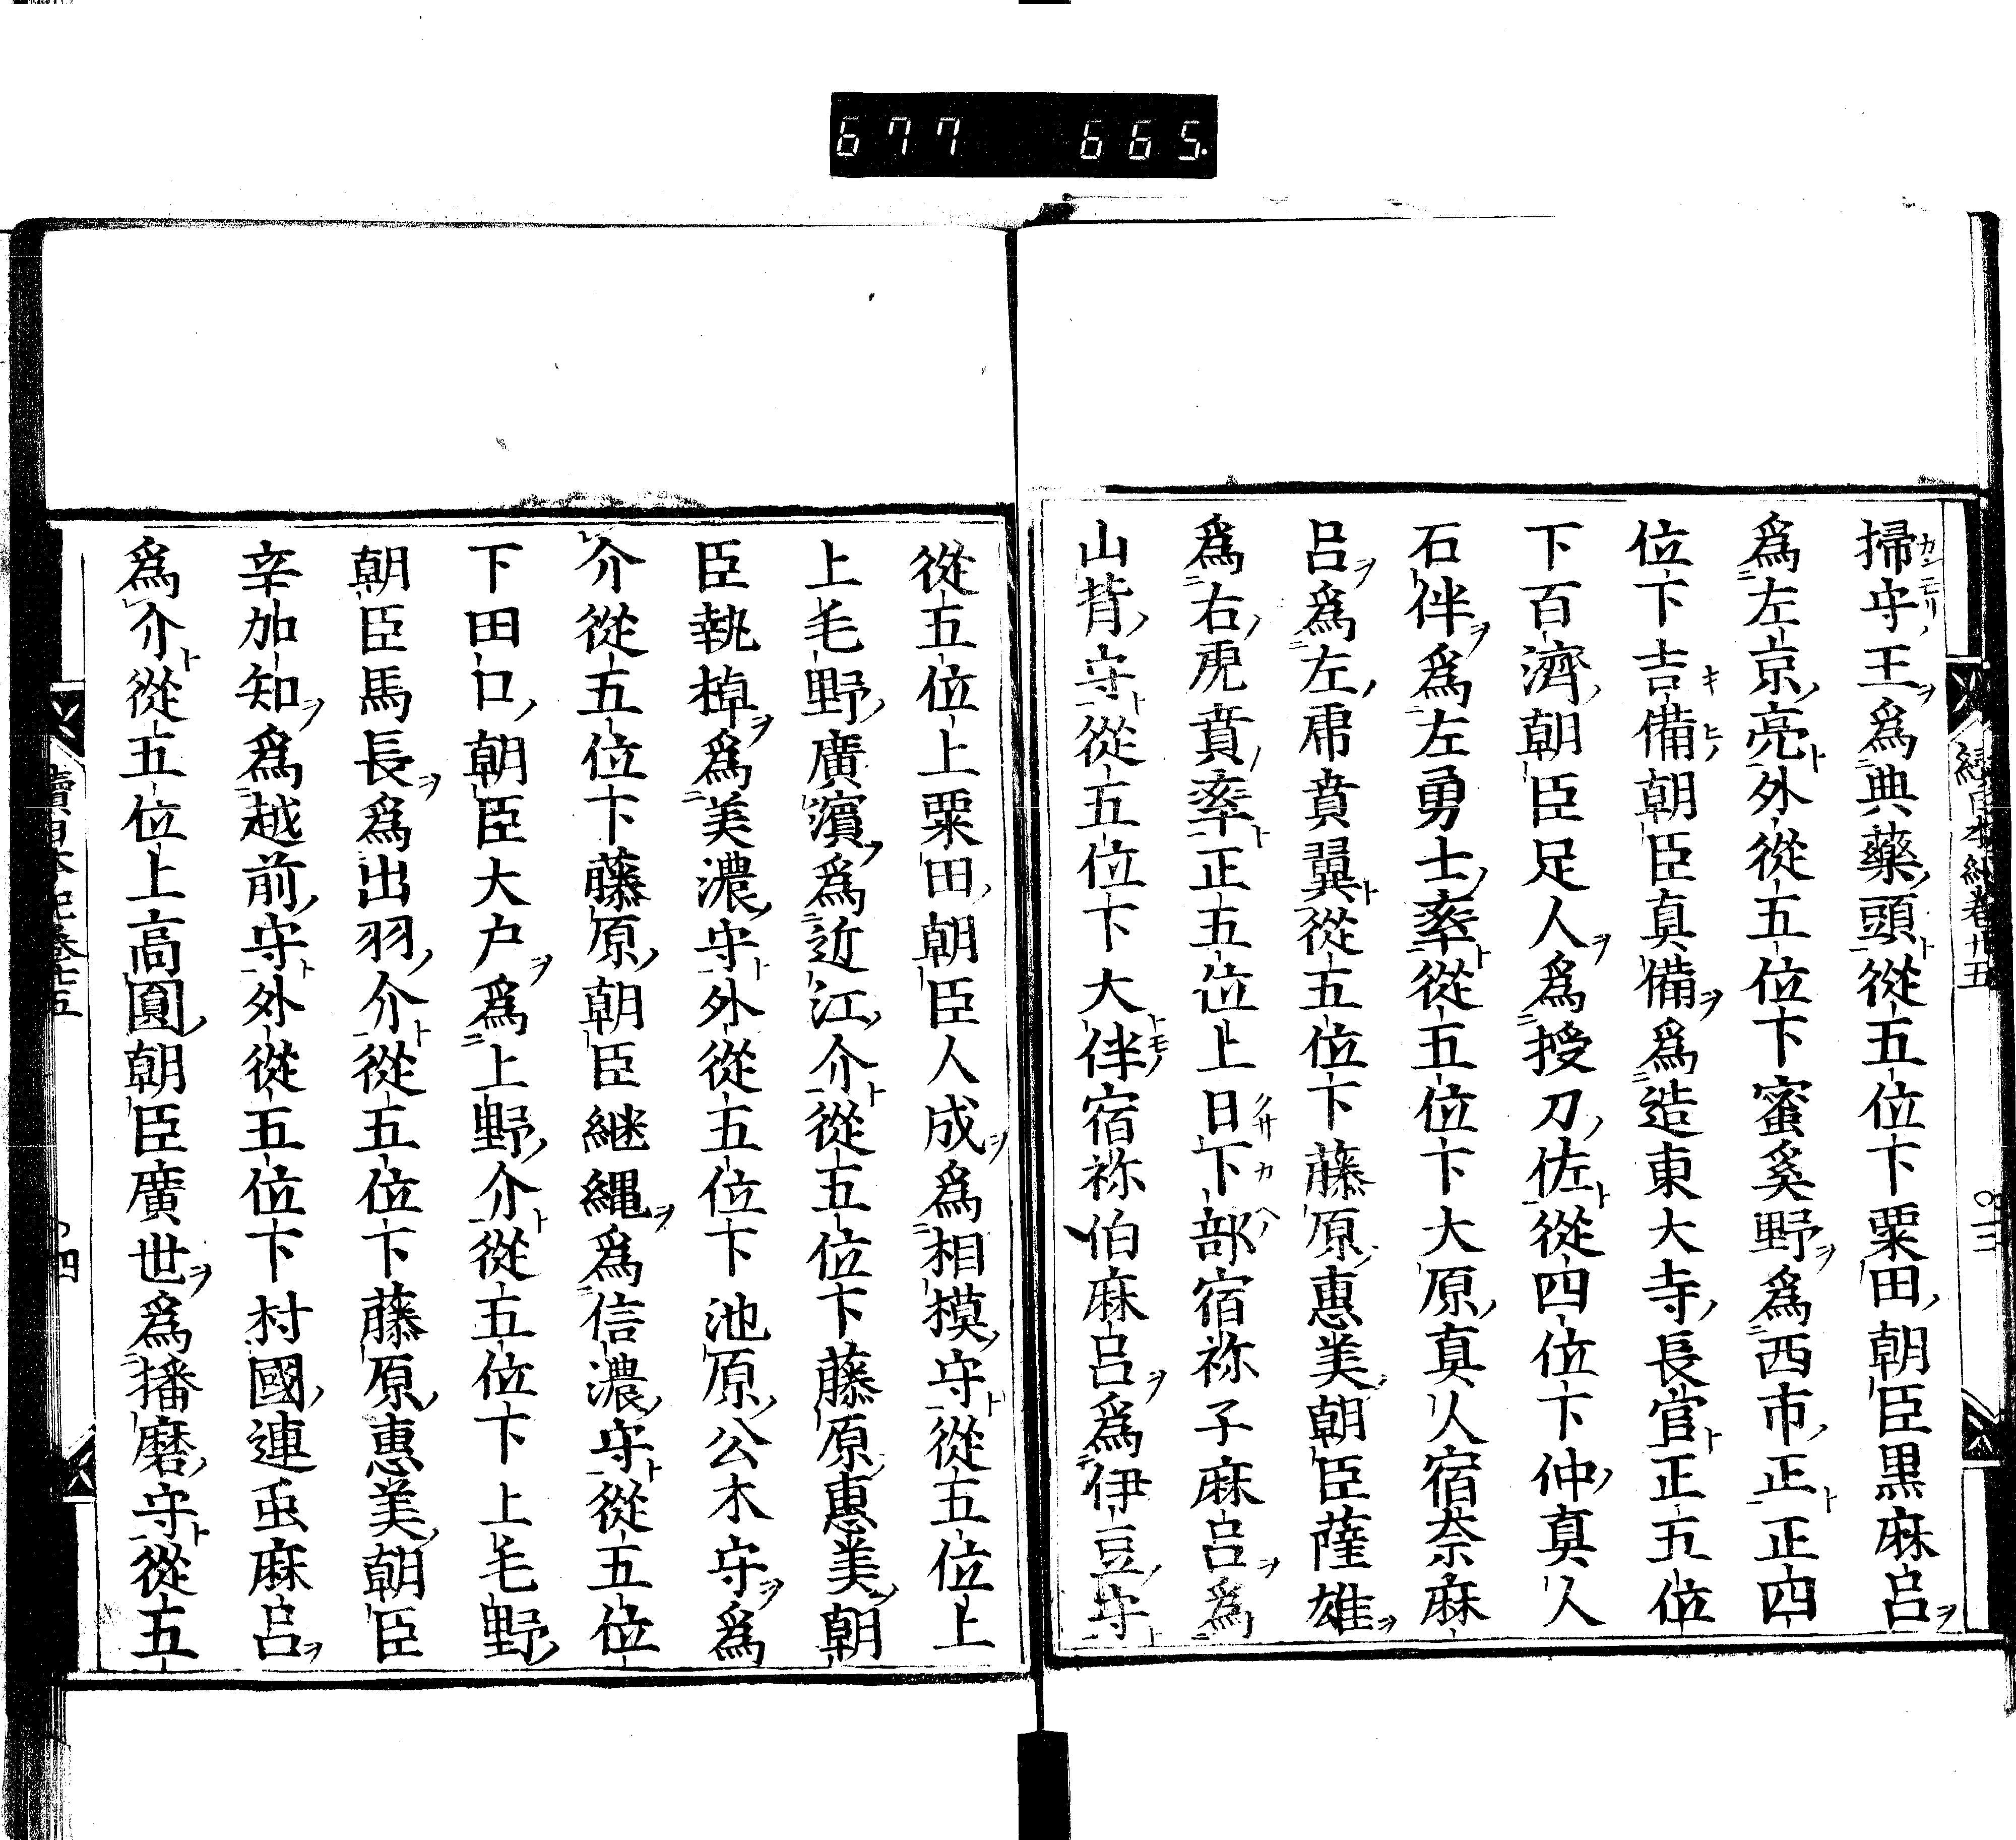 677 665.
續日本紀卷廿五
掃守王爲典藥頭從五位下粟田朝臣黒麻呂
爲左京亮外從五位下蜜奚野爲西市正正四
位下吉備朝臣真備爲造東大寺長官正五位
下百濟朝臣足人爲授刀佐從四位下仲真人
石伴爲左勇士率從五位下大原真人宿奈麻
呂爲左虎賁翼從五位下藤原惠美朝臣薩雄
爲右虎賁率正五位上日下部宿祢子麻呂爲
山背守從五位下大伴宿祢伯麻呂爲伊豆守
從五位上粟田朝臣人成爲相模守從五位上
上毛野廣濱爲近江介從五位下藤原惠美朝
臣執棹爲美濃守外從五位下池原公木守爲
介從五位下藤原朝臣継縄爲信濃守從五位
下田口朝臣大户爲上野介從五位下上毛野
朝臣馬長爲出羽介從五位下藤原惠美朝臣
辛加知爲越前守外從五位下村國連䖝麻呂
爲介從五位上高圓朝臣廣世爲播磨守從五
續日本紀卷廿五
四